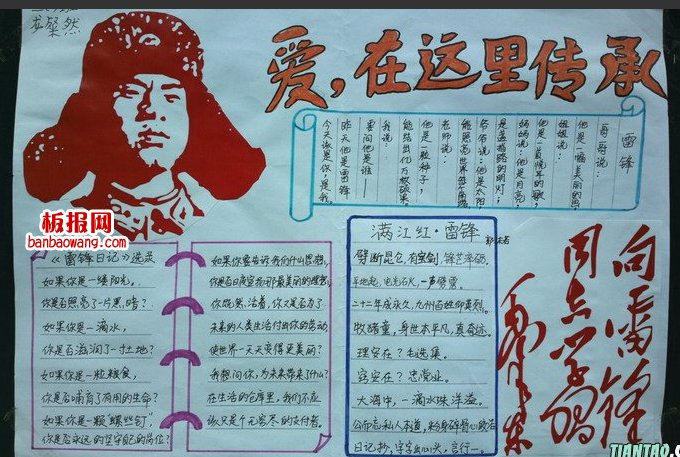 龙粲然
爱，在这里传承
雷锋
哥哥说：
他是一幅美丽的画
姐姐说：
他是一首悦耳的歌，
妈妈说：他是月亮，
是盏指路的明灯，
爷爷说：他是太阳，
能照亮世界
老师说：
他是一粒种子，
能结出亿万颗硕果，
我说：
要问他是谁——
昨天他是雷锋
今天该是你，是我
板报网
banbaowang.com
《雷锋日记》选录
如果你是一缕阳光，
你是否照亮了一片黑暗？
如果你是一滴水，
你是否滋润了一寸土地？
如果你是一粒粮食，
你是否哺育了有用的生命？
如果你是一颗"螺丝钉"，
你是否永远的坚守你的岗位？
如果你要告诉我们什么思想，
你是否日夜宣扬那最美丽的理想？
你既然活着，你又是否为了
未来的人类生活付出你的劳动
使世界一天天变得更美丽？
我想问你，为未来带来了什么？
在生活的仓库里，我们不应
该只是个无穷尽的支付者。
满江红·雷锋
郭沫若
劈断昆仑，有宝剑，锋芒淬砺，
平地起，电光石火，一声劈雳。
二十二年成永久，九州百姓仰英烈。
牧猪童，身世本平凡，真奇迹。
理安在？毛选集。
容安在？忠党业。
大海中，一滴水珠洋溢。
公而忘私人本道，粉身碎骨心
日记抄，字字出心头，言行一。
向雷锋
同志学习
毛泽东
TIANTAO.C